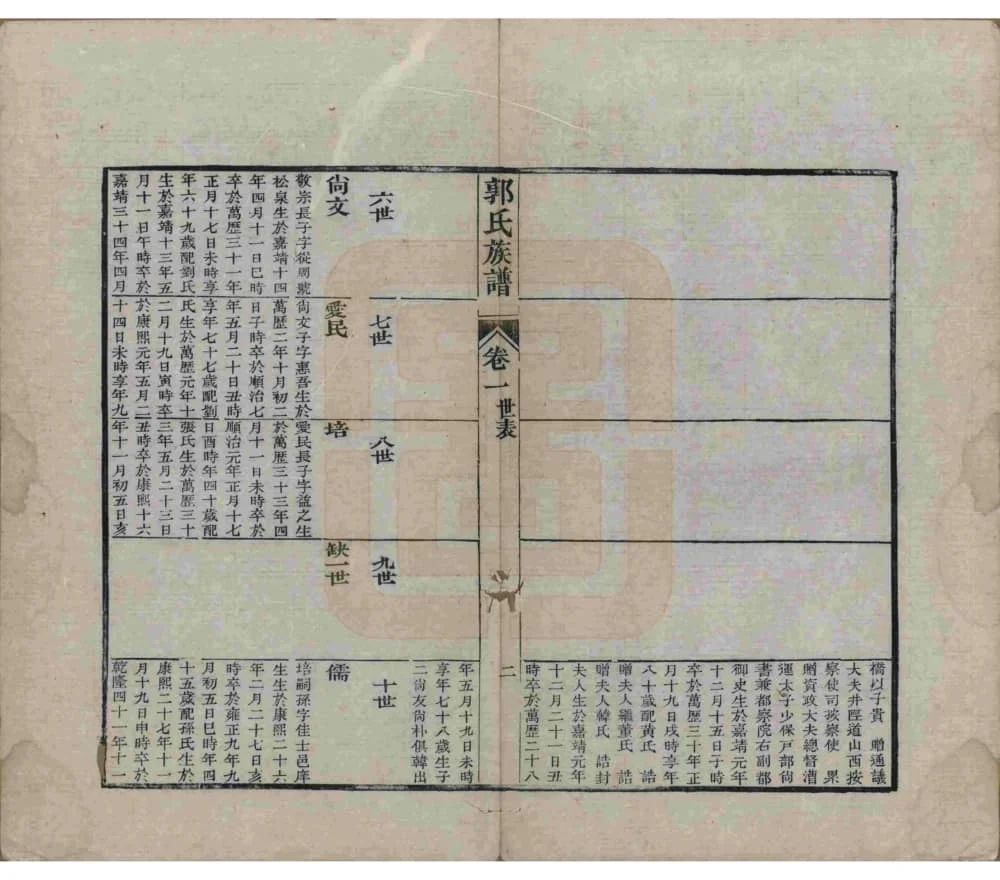 橋以子貴　贈通議
大夫井陘道山西按
察使司按察使　累
贈資政大夫總督漕
運太子少保戸部尚
書兼都察院右副都
御史生於嘉靖元年
十二月十五日子時
卒於萬歷三十年正
月十九日戌時享年
八十歲配黃氏　誥
贈夫人繼董氏　誥
贈夫人韓氏　誥封
夫人生於嘉靖元年
十二月二十一日丑
時卒於萬歷二十八
郭氏族譜
卷一　世表
二
年五月十九日未時
享年七十八歲生子
二尙友尙朴俱韓出
六世
七世
八世
九世
十世
尙文
敬宗長子字從周號
松泉生於嘉靖十四
年四月十一日巳時
卒於萬歷三十一年
正月十七日未時享
年六十九歲配劉氏
生於嘉靖十三年五
月十一日午時卒於
嘉靖三十四年四月
愛民
尙文子字惠吾生於
萬歷二年十月初二
日子時卒於順治七
年五月二十日丑時
享年七十七歲配劉
氏生於萬歷元年十
二月十九日寅時卒
於康熙元年五月二
十四日未時享年九
培
愛民長子字益之生
於萬歷三十三年四
月十一日未時卒於
順治元年正月十七
日酉時年四十歲配
張氏生於萬歷三十
三年五月二十三日
丑時卒於康熙十六
年十一月初五日亥
缺一世
儒
培嗣孫字佳士邑庠
生生於康熙二十六
年二月二十七日亥
時卒於雍正九年九
月初五日巳時年四
十五歲配孫氏生於
康熙二十七年十一
月十九日申時卒於
乾隆四十一年十一